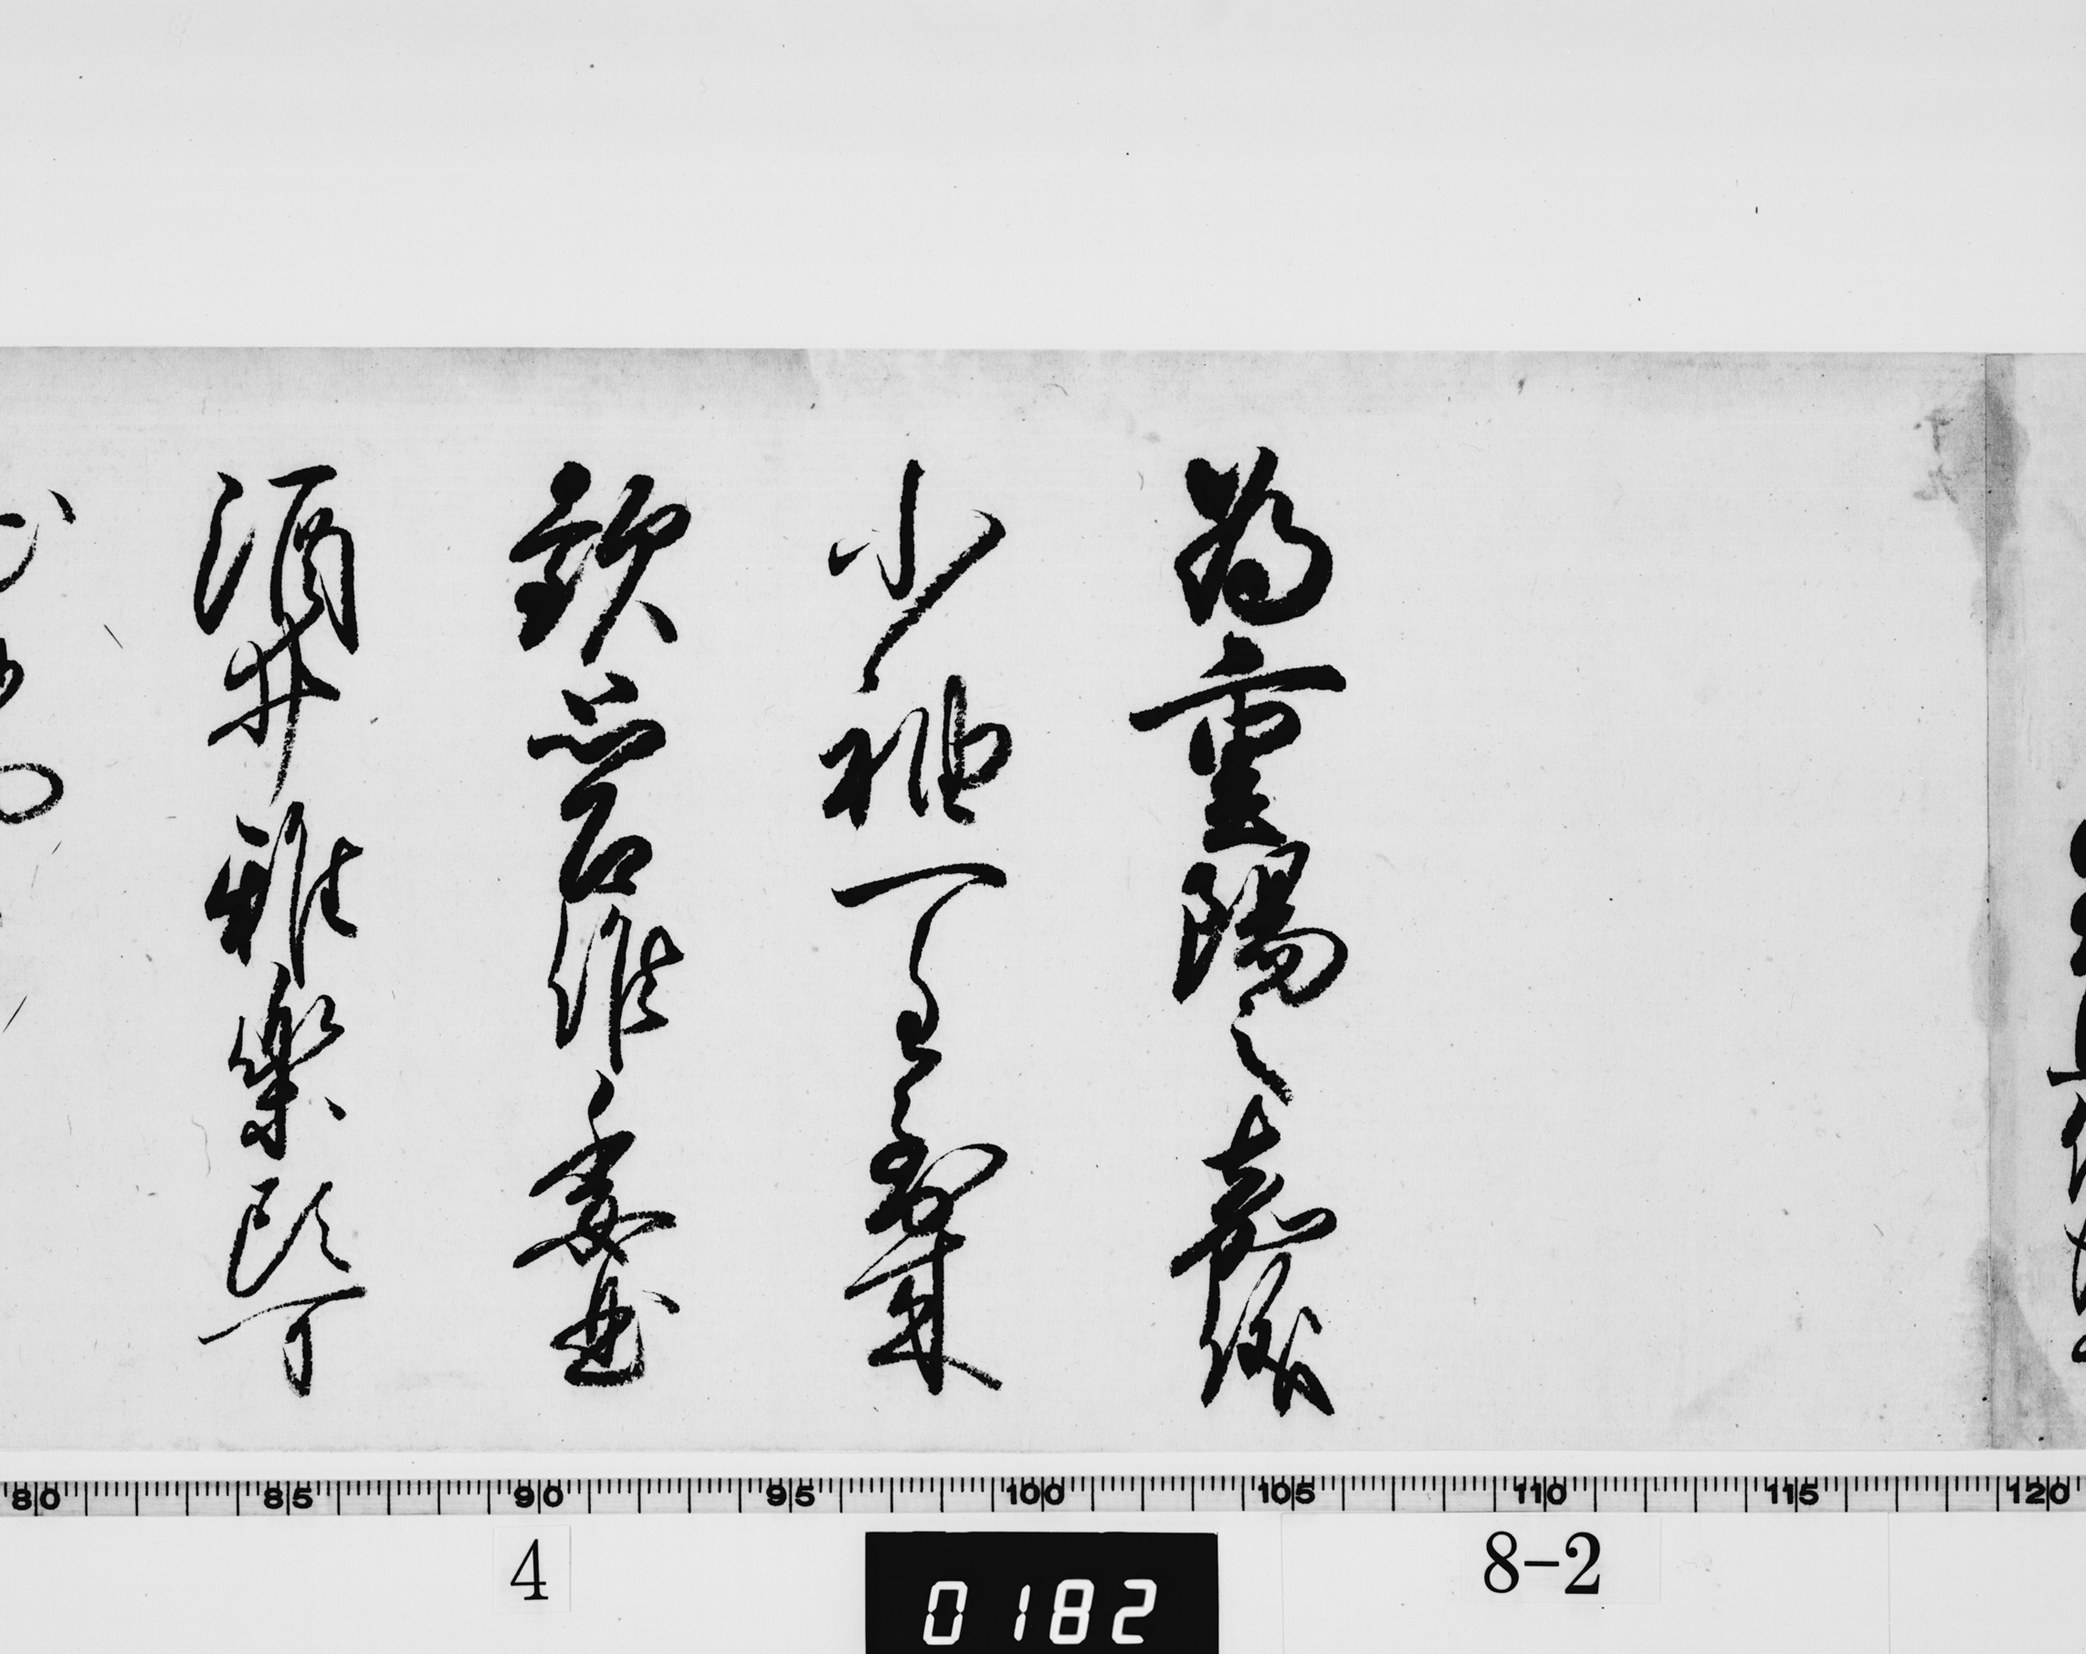 為重陽之嘉儀
小袖一重到来
歓思召候委曲
酒井雅楽頭可
80 85 90 95 100 105 110 115 120
4
0182
8-2